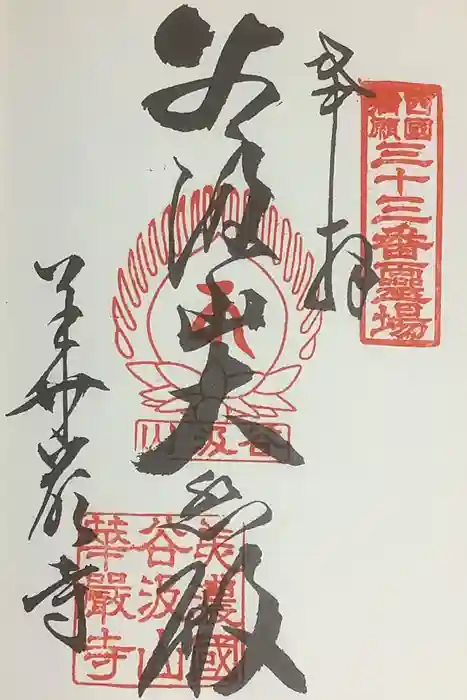 西國
滿願
三十三番靈場
奉拝
谷汲山大悲殿
谷汲山
華厳寺
美濃國
谷汲山
華嚴寺